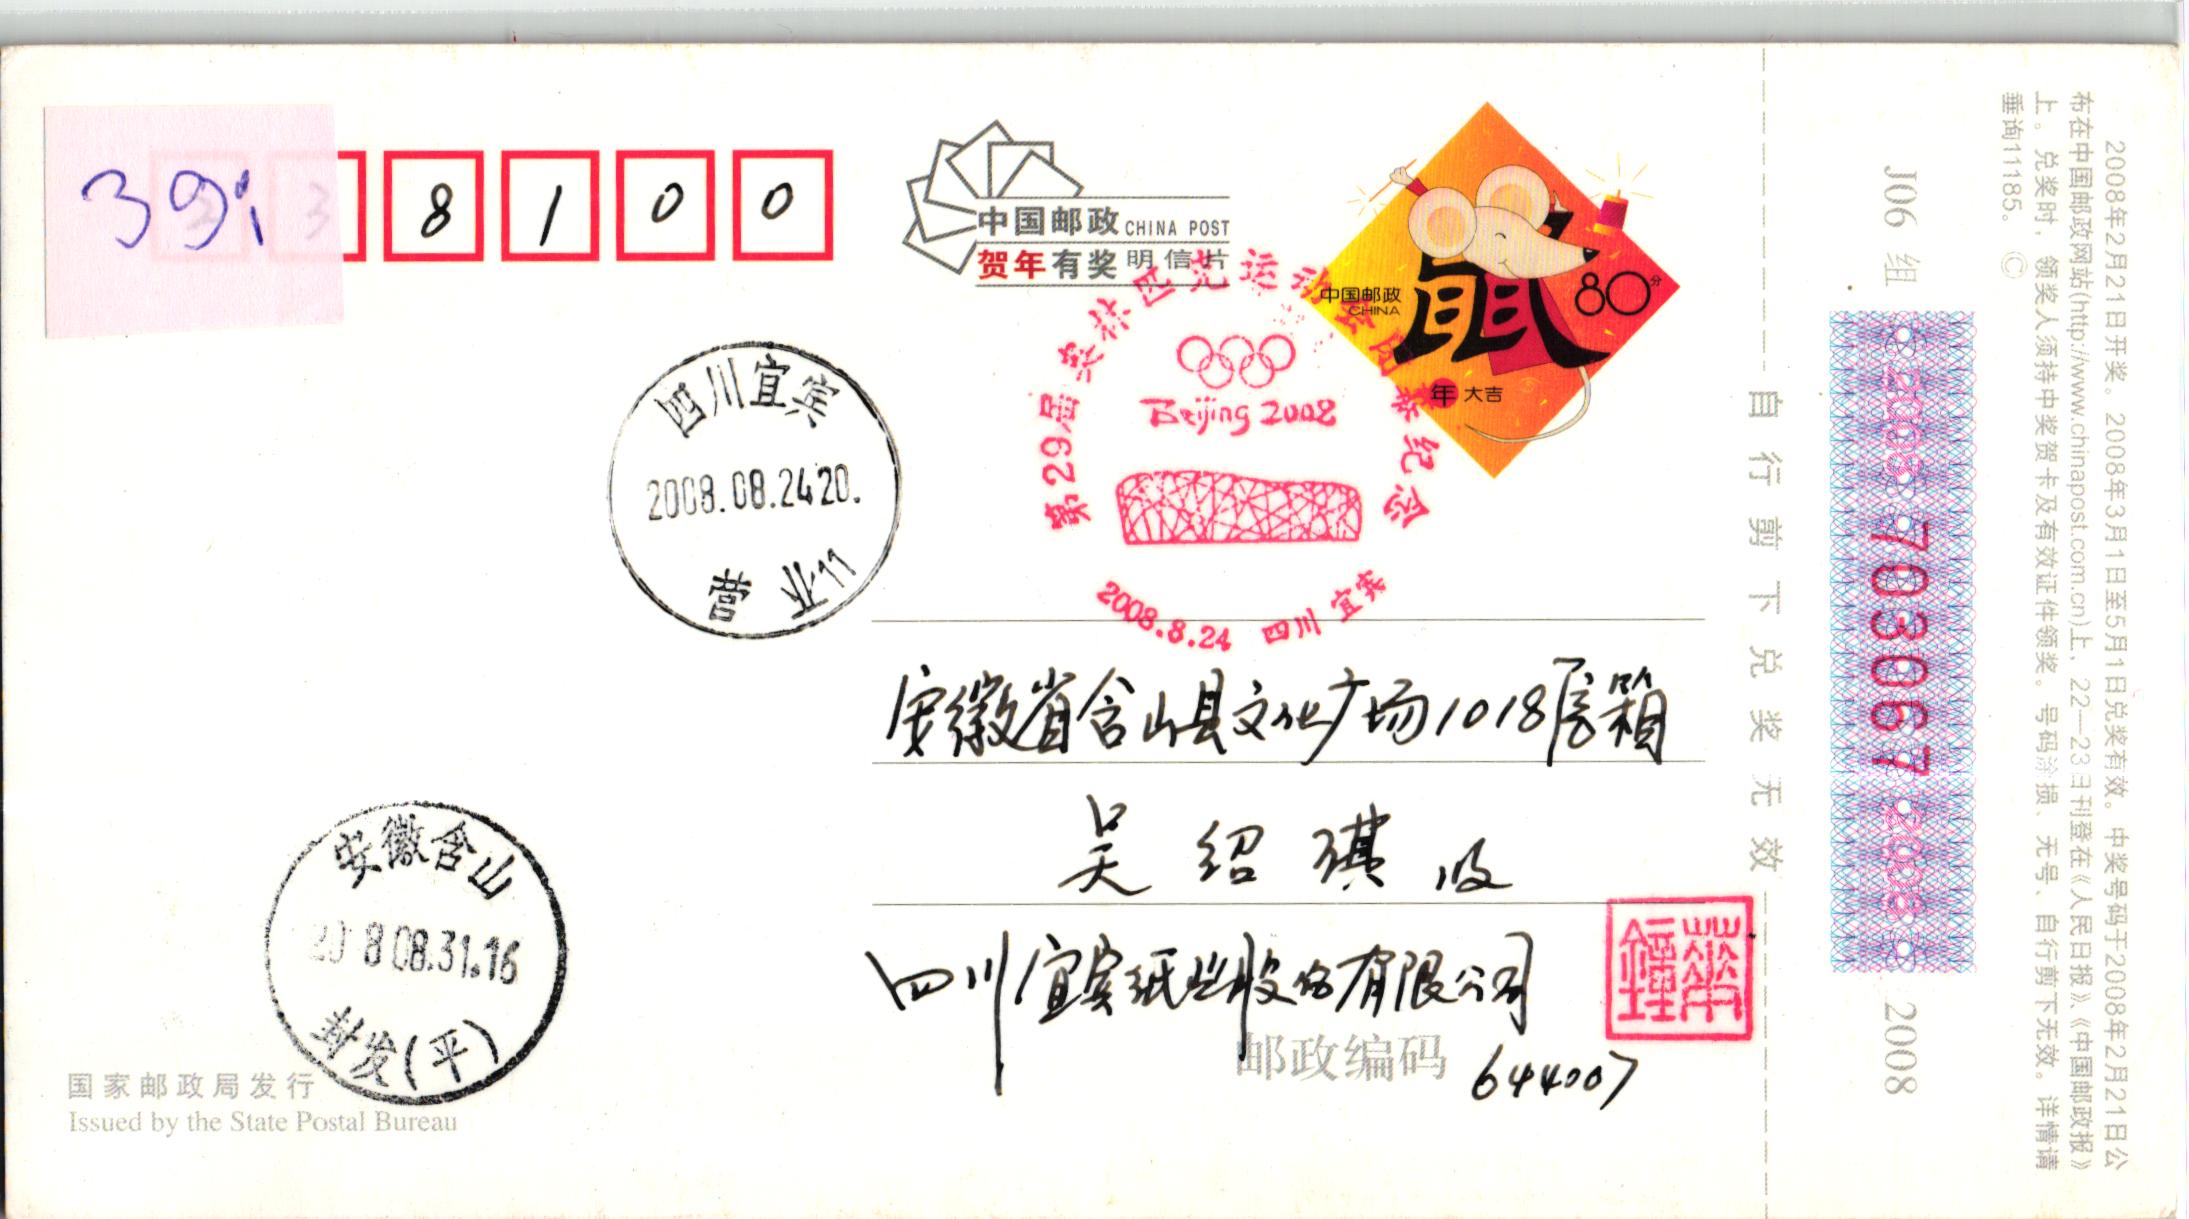 39
3 8 1 0 0
中国邮政 CHINA POST
贺年有奖明信片
中国邮政
CHINA
鼠
80分
年大吉
第29届奥林匹克运动会闭幕纪念
Beijing 2008
2008.8.24 四川 宜宾
四川宜宾
2008.08.24 20.
营业11
安徽省含山县文化广场1018信箱
吴绍琪 收
四川宜宾纸业股份有限公司
邮政编码 644007
安徽含山
2008.08.31.16
封发(平)
国家邮政局发行
Issued by the State Postal Bureau
自行剪下兑奖无效
J06 组
2008 703067 2008
2008
2008年2月21日开奖。2008年3月1日至5月1日兑奖有效。中奖号码于2008年2月21日公
布在中国邮政网站(http://www.chinapost.com.cn)上，22—23日刊登在《人民日报》《中国邮政报》
上。兑奖时，领奖人须持中奖贺卡及有效证件领奖。号码涂损、无号、自行剪下无效。详情请
垂询11185。 ©